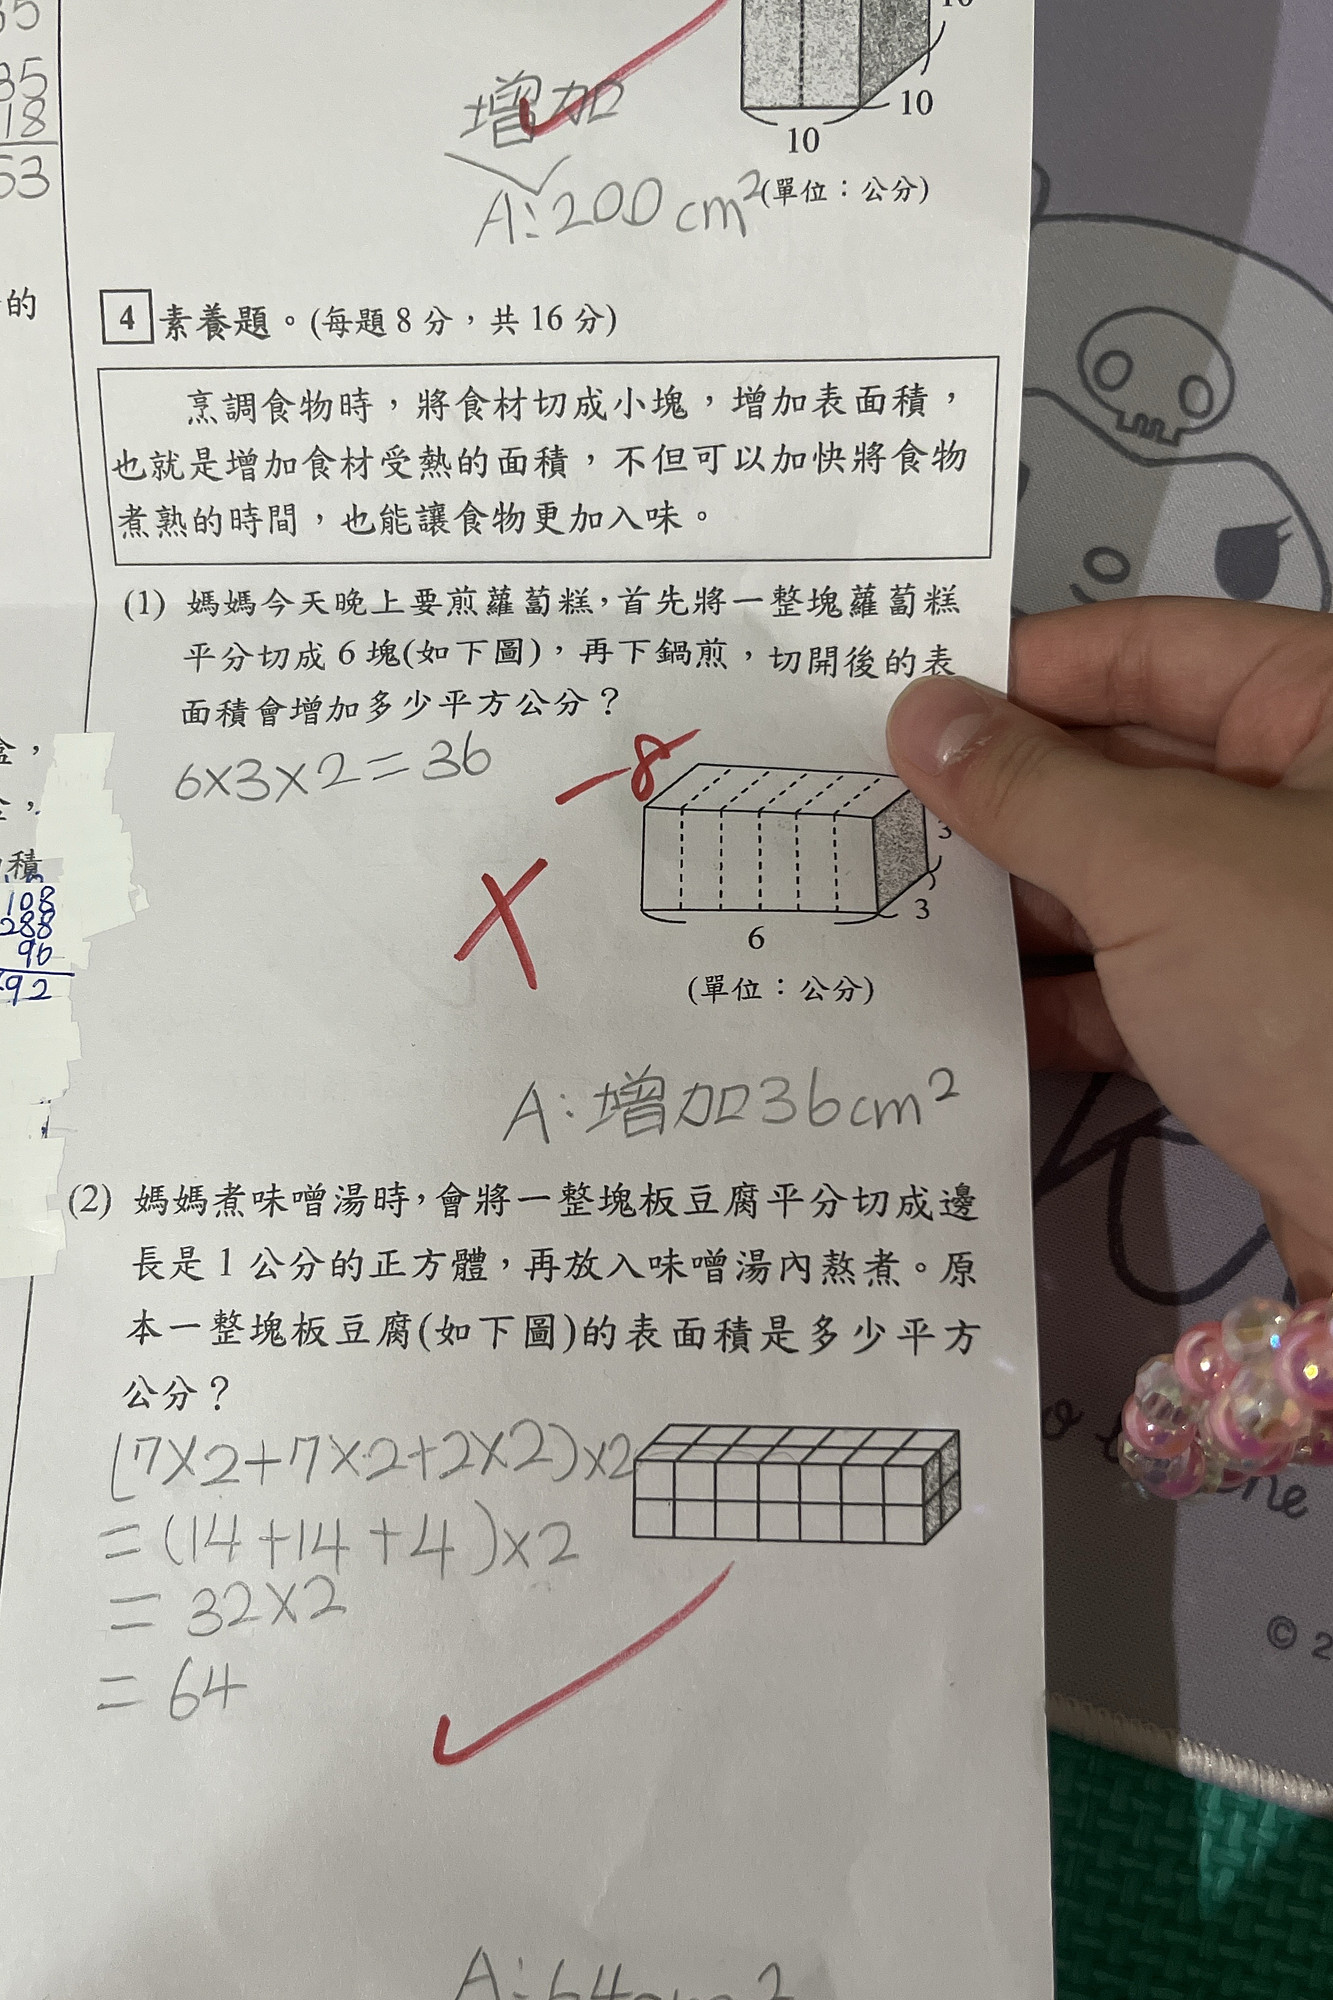 35
35
18
53
10
增加
10
10
A:200cm²(單位：公分)
的
4 素養題。(每題8分，共16分)
烹調食物時，將食材切成小塊，增加表面積，
也就是增加食材受熱的面積，不但可以加快將食物
煮熟的時間，也能讓食物更加入味。
(1) 媽媽今天晚上要煎蘿蔔糕，首先將一整塊蘿蔔糕
平分切成6塊(如下圖)，再下鍋煎，切開後的表
面積會增加多少平方公分？
盒，
6×3×2=36
-8
積
3
3
6
108
288
96
92
(單位：公分)
A:增加36cm²
(2) 媽媽煮味噌湯時，會將一整塊板豆腐平分切成邊
長是1公分的正方體，再放入味噌湯內熬煮。原
本一整塊板豆腐(如下圖)的表面積是多少平方
公分？
(7×2+7×2+2×2)×2
=(14+14+4)×2
=32×2
=64
© 2
A:64cm²